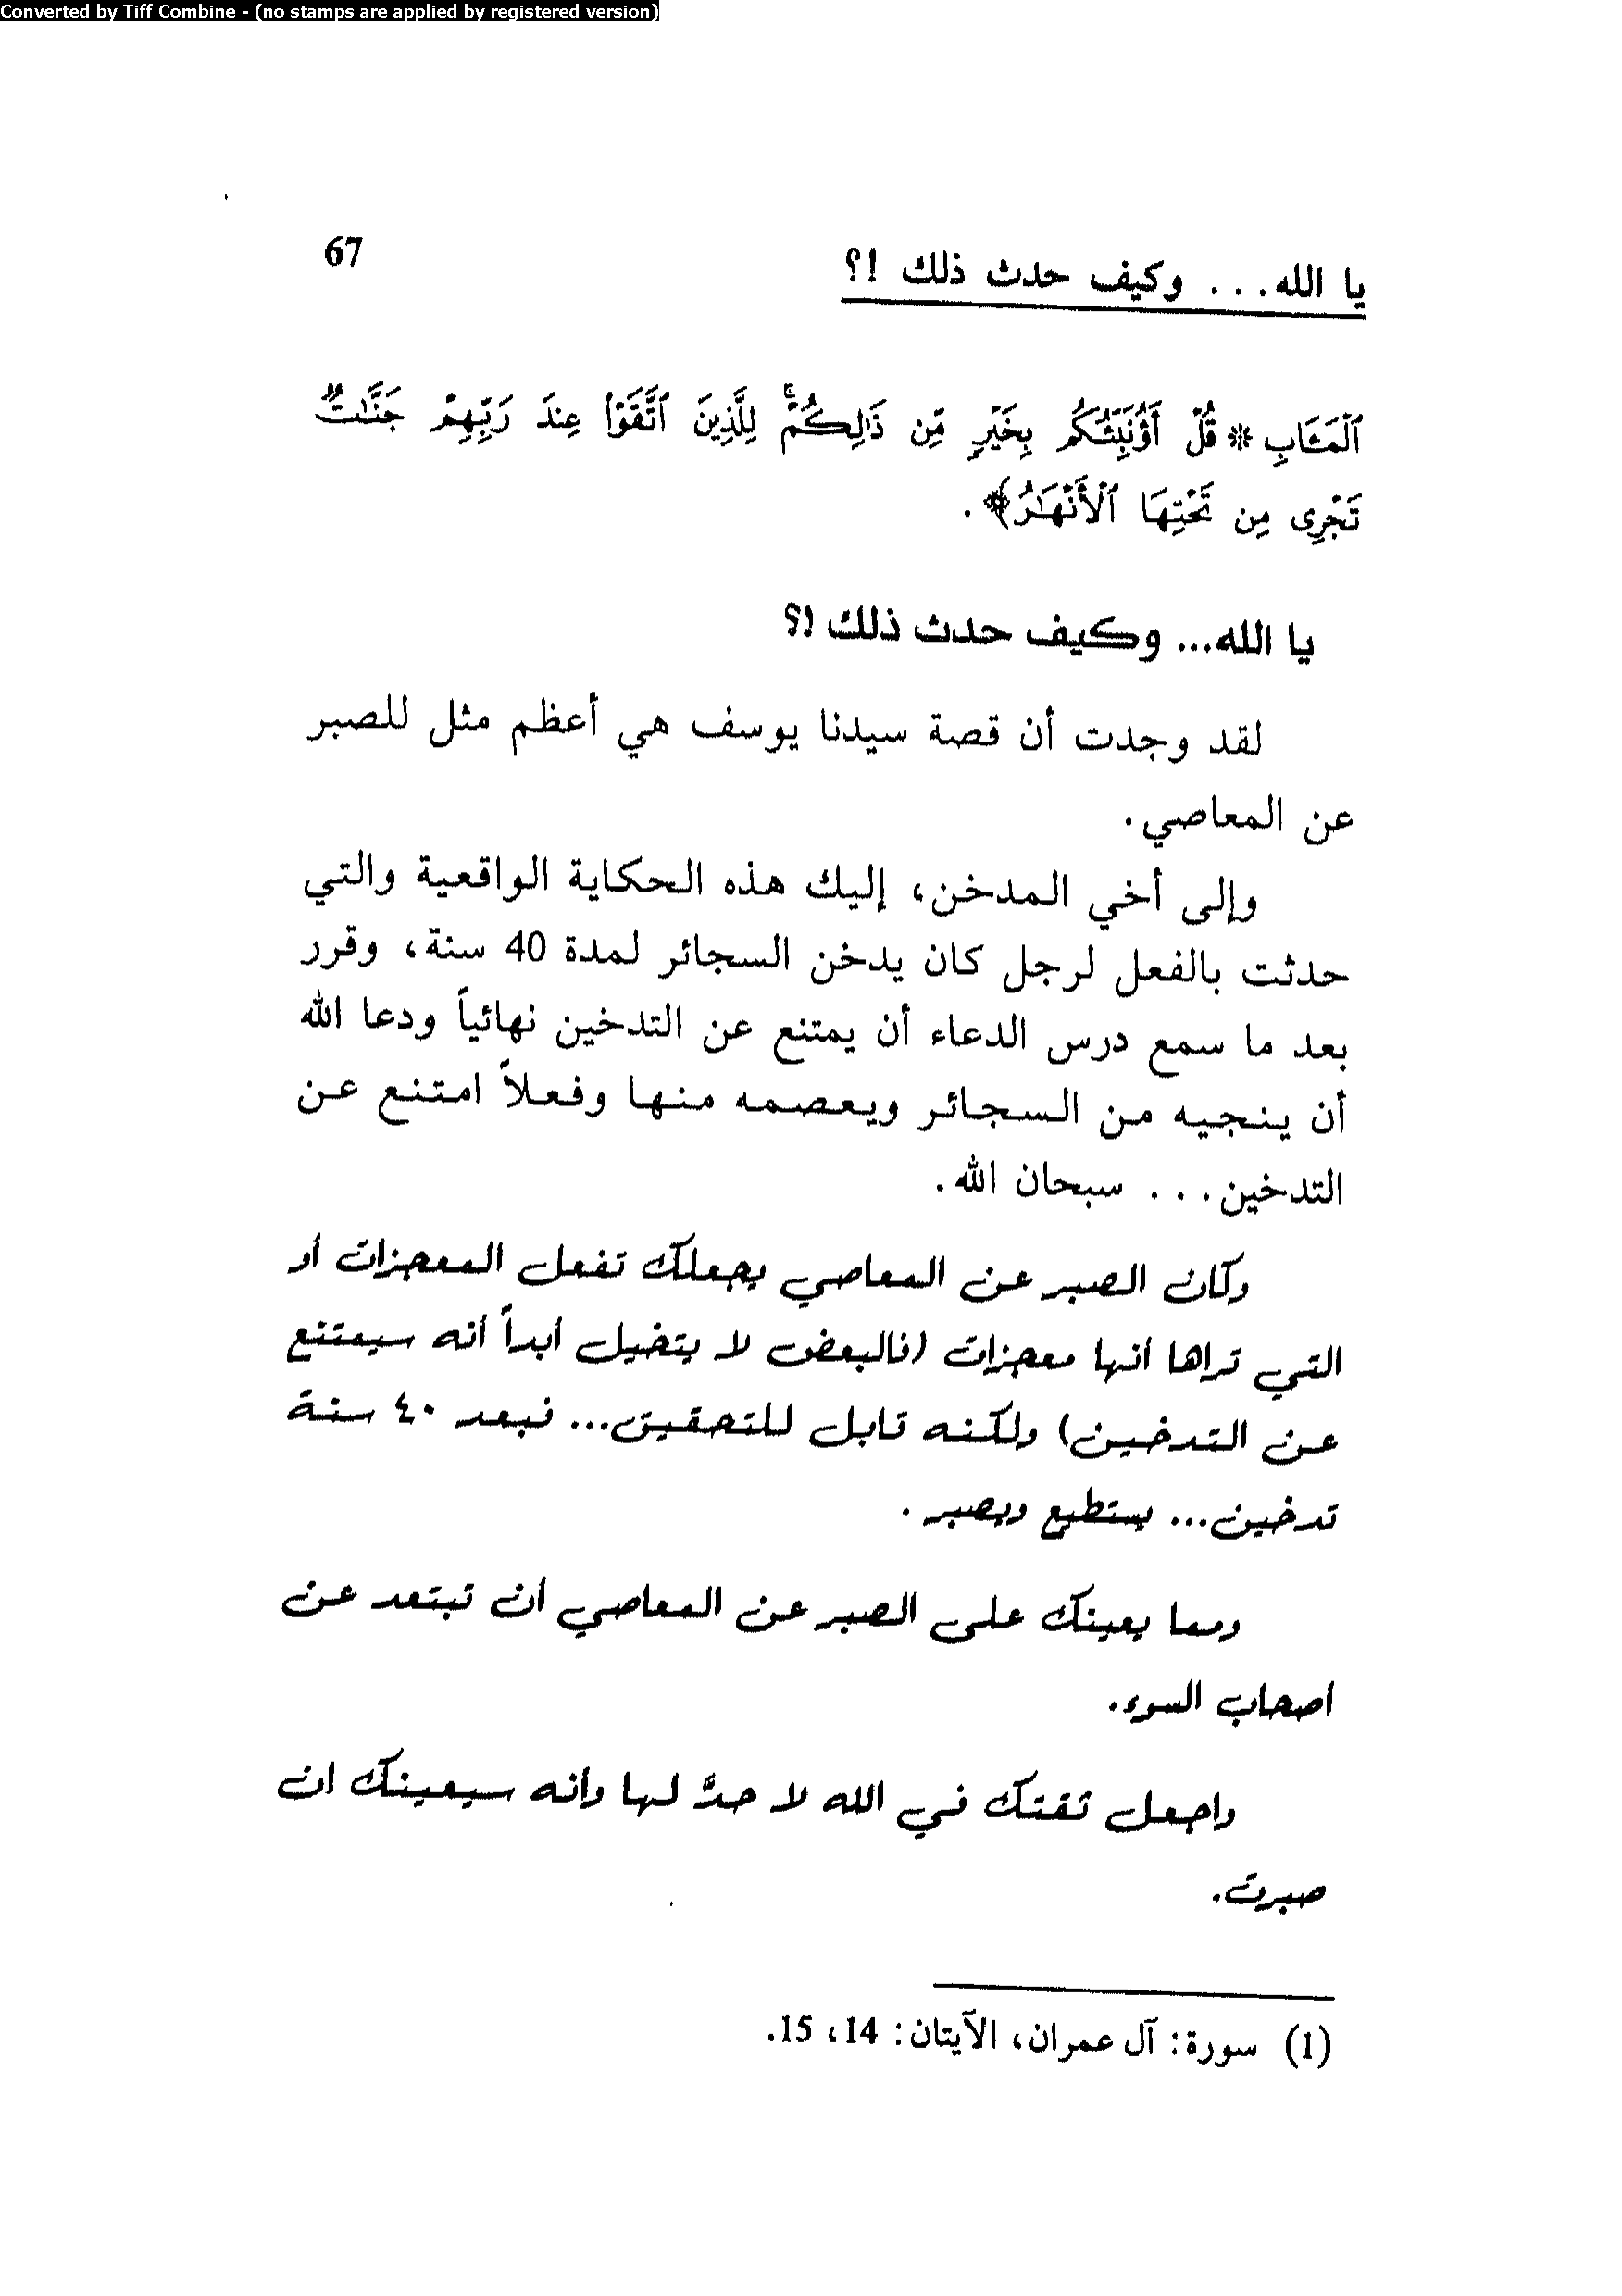 Converted by Tiff Combine - (no stamps are applied by registered version)
يا الله... وكيف حدث ذلك !؟ 67
ٱلْمَـَٔابِ * قُلْ أَؤُنَبِّئُكُم بِخَيْرٍ مِّن ذَٰلِكُمْ ۚ لِلَّذِينَ ٱتَّقَوْا۟ عِندَ رَبِّهِمْ جَنَّـٰتٌ
تَجْرِى مِن تَحْتِهَا ٱلْأَنْهَـٰرُ﴾.
يا الله... وكيف حدث ذلك !؟
لقد وجدت أن قصة سيدنا يوسف هي أعظم مثل للصبر
عن المعاصي.
وإلى أخي المدخن، إليك هذه الحكاية الواقعية والتي
حدثت بالفعل لرجل كان يدخن السجائر لمدة 40 سنة، وقرر
بعد ما سمع درس الدعاء أن يمتنع عن التدخين نهائياً ودعا الله
أن ينجيه من السجائر ويعصمه منها وفعلاً امتنع عن
التدخين... سبحان الله.
وكان الصبر عن المعاصي يجعلك تفعل المعجزات أو
التي تراها أنها معجزات (فالبعض لا يتخيل أبداً أنه سيمتنع
عن التدخين) ولكنه قابل للتحقيق... فبعد ٤٠ سنة
تدخين... يستطيع ويصبر.
ومما يعينك على الصبر عن المعاصي أن تبتعد عن
أصحاب السوء.
واجعل ثقتك في الله لا حدَّ لها وأنه سيعينك إن
صبرت.
(1) سورة: آل عمران، الآيتان: 14، 15.